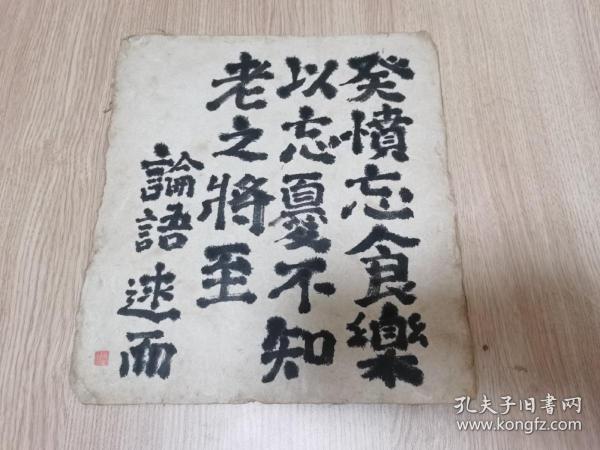 發憤忘食樂
以忘憂不知
老之將至
論語 述而
孔夫子旧書网
www.kongfz.com